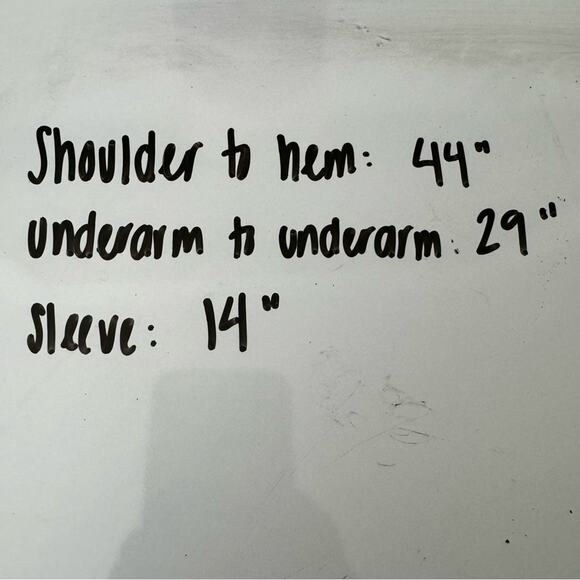 Shoulder to hem: 44"
underarm to underarm: 29"
Sleeve: 14"